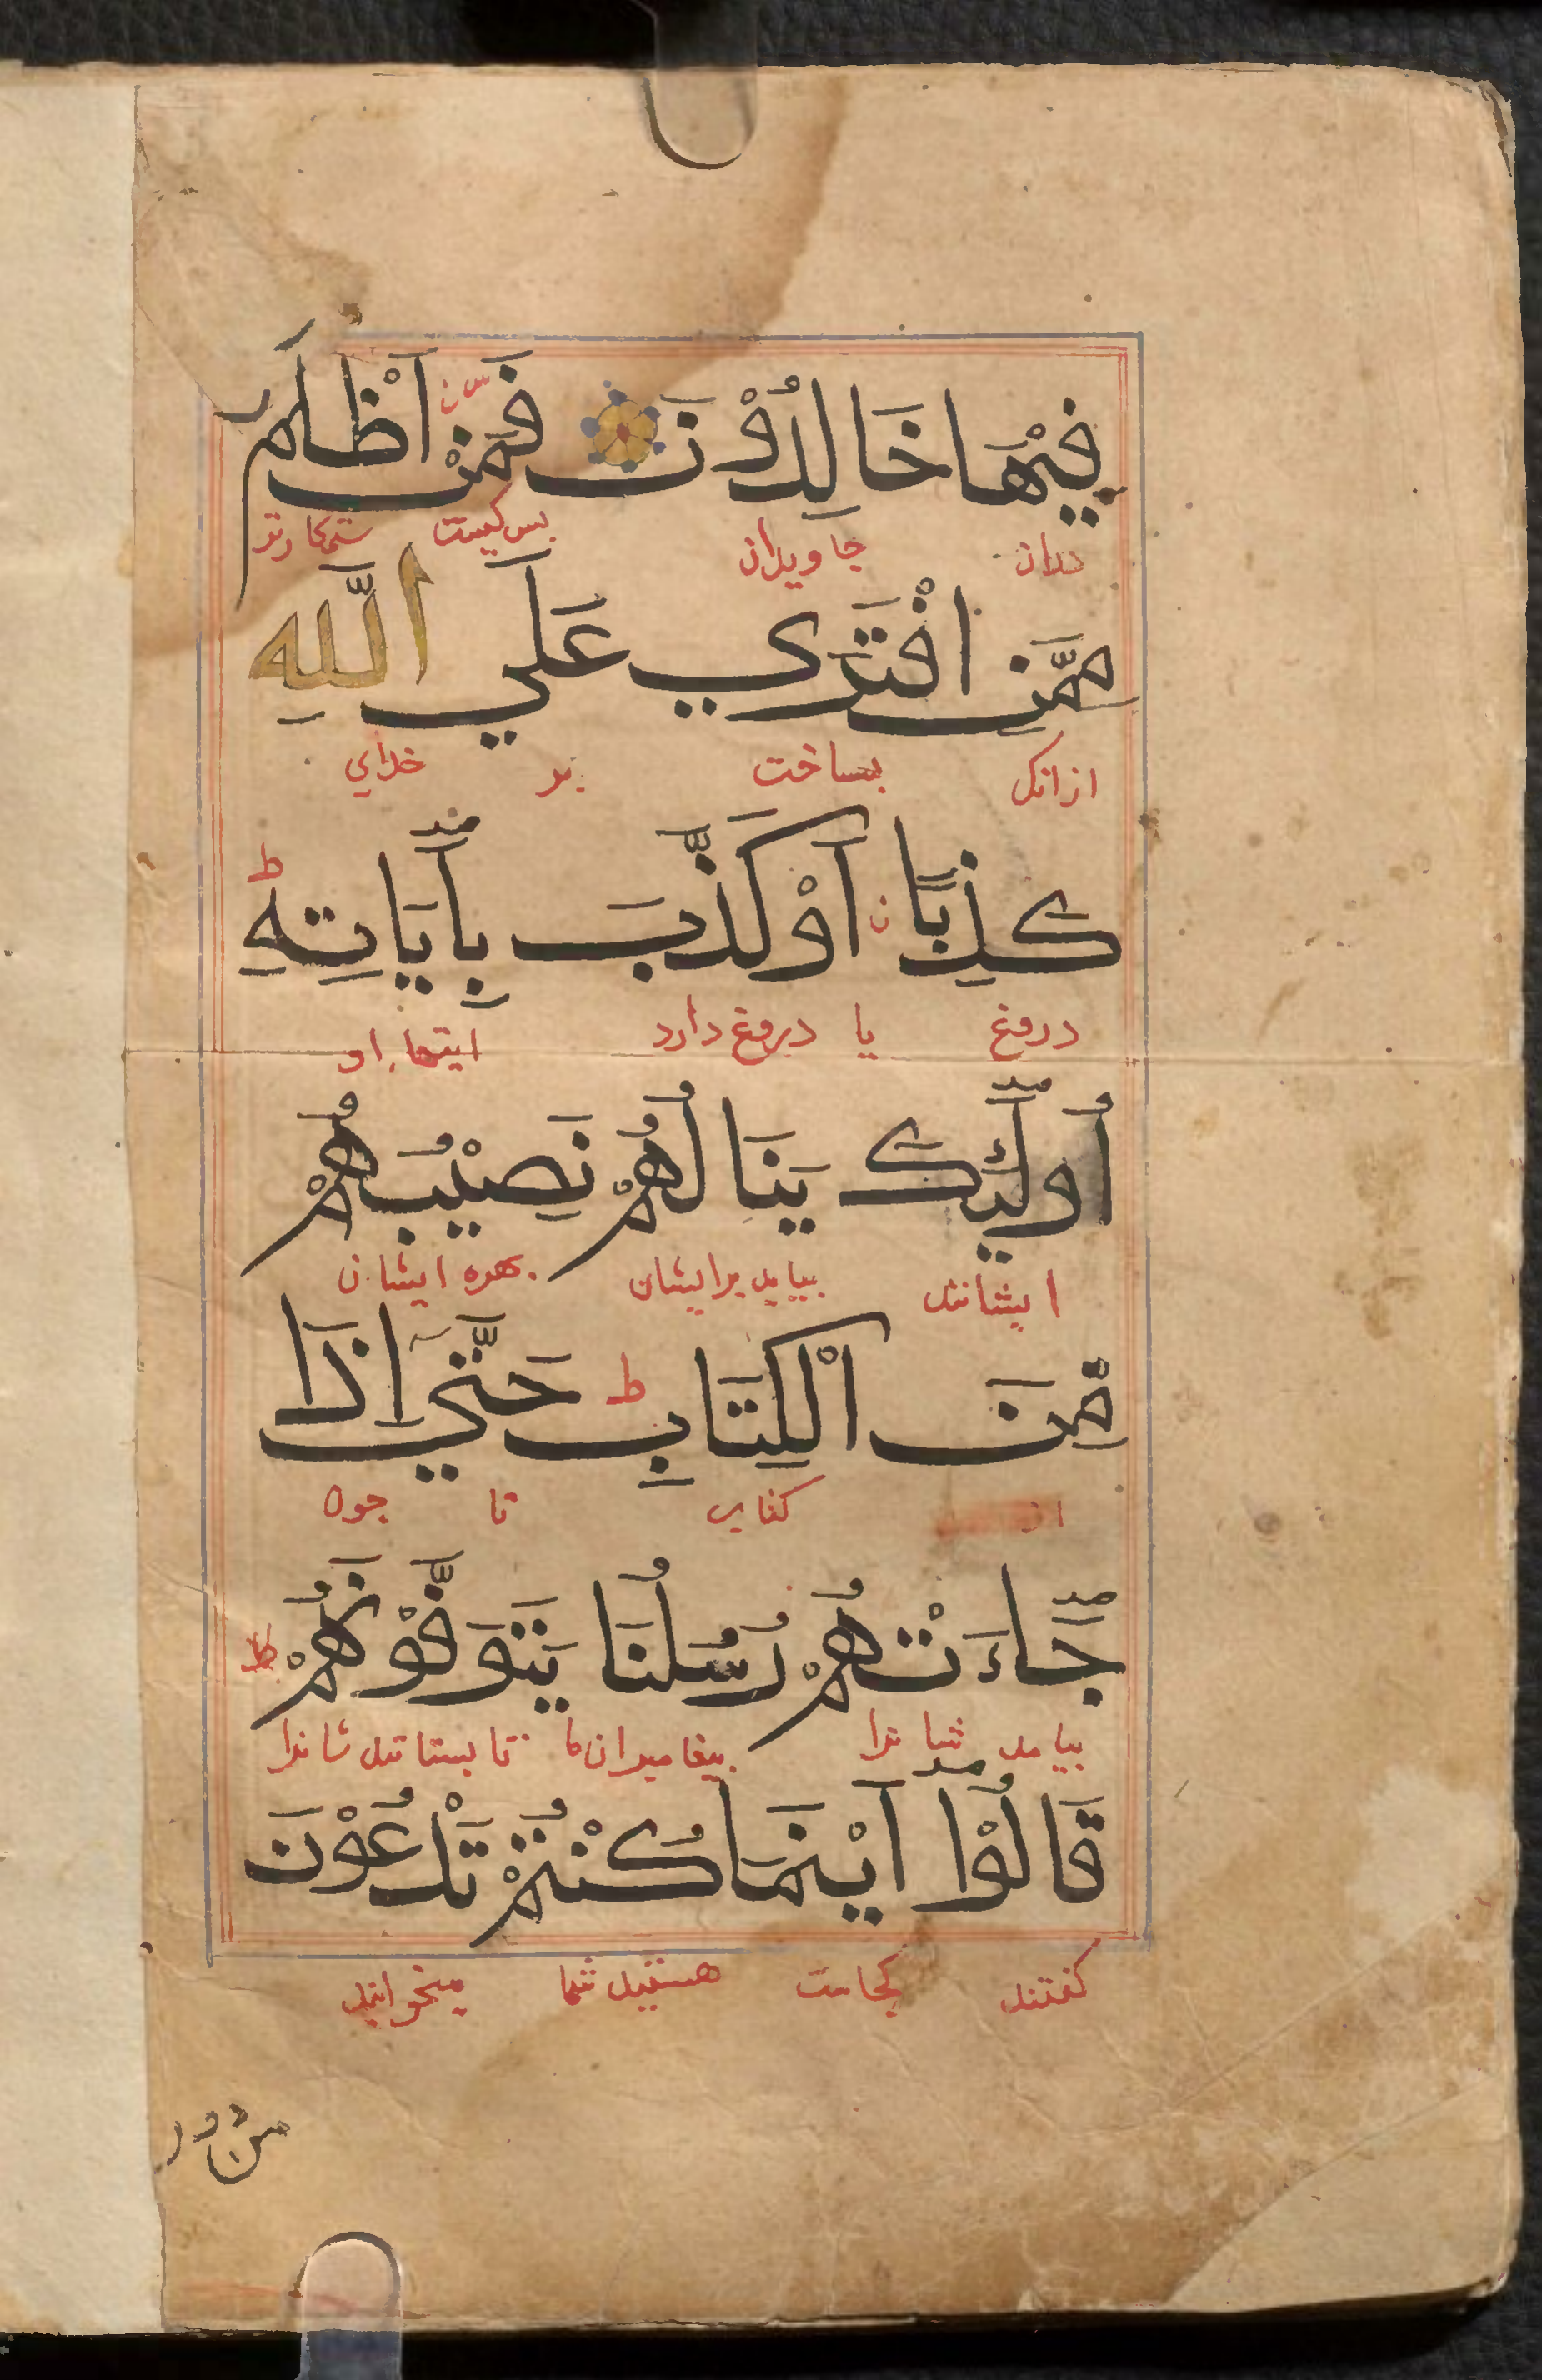 فِيْهَا خَالِدُوْنَ فَمَنْ اَظْلَمُ
دران جاویدان بس کیست ستمکارتر
مِمَّنِ افْتَرَي عَلَي اللَّهِ
ازانک بساخت بر خدای
كَذِبًا اَوْ كَذَّبَ بِاَيَاتِهِ ط
دروغ یا دروغ دارد ایتهاء او
اُولَئِكَ يَنَالُهُمْ نَصِيْبُهُمْ
ایشانند بیاید برایشان بهره ایشان
مِنَ الْكِتَابِ ط حَتَّي اِذَا
از تا جون
جَاءَتْهُمْ رُسُلُنَا يَتَوَفَّوْنَهُمْ
بیامد شانرا بیغامبران ما تا بستانند شانرا
قَالُوْا اَيْنَمَا كُنْتُمْ تَدْعُوْنَ
کفتند کجاست هستید شما میخوانید
من دو